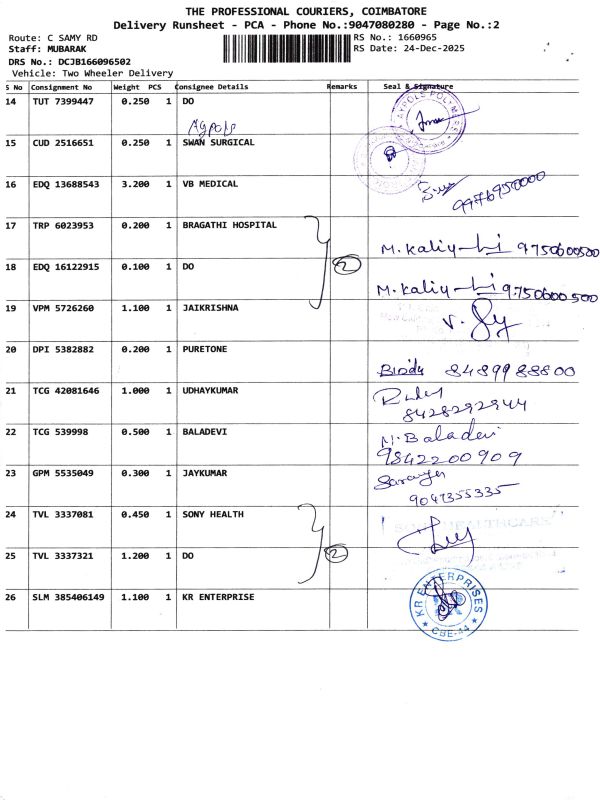 THE PROFESSIONAL COURIERS, COIMBATORE
Delivery Runsheet - PCA - Phone No.:9047080280 - Page No.:2
Route: C SAMY RD
RS No.: 1660965
Staff: MUBARAK
RS Date: 24-Dec-2025
DRS No.: DCJB166096502
Vehicle: Two Wheeler Delivery
S No Consignment No Weight PCS Consignee Details Remarks Seal & Signature
14 TUT 7399447 0.250 1 DO
Agpols
15 CUD 2516651 0.250 1 SWAN SURGICAL
16 EDQ 13688543 3.200 1 VB MEDICAL
9976950000
17 TRP 6023953 0.200 1 BRAGATHI HOSPITAL
M. Kaliy 9750600500
2
18 EDQ 16122915 0.100 1 DO
M. Kaliy 9750600500
19 VPM 5726260 1.100 1 JAIKRISHNA
20 DPI 5382882 0.200 1 PURETONE
8489988800
21 TCG 42081646 1.000 1 UDHAYKUMAR
8428292944
22 TCG 539998 0.500 1 BALADEVI
M. Baladevi
9842200909
23 GPM 5535049 0.300 1 JAYKUMAR
9047355335
24 TVL 3337081 0.450 1 SONY HEALTH
2
25 TVL 3337321 1.200 1 DO
26 SLM 385406149 1.100 1 KR ENTERPRISE
KR ENTERPRISES
CBE-44